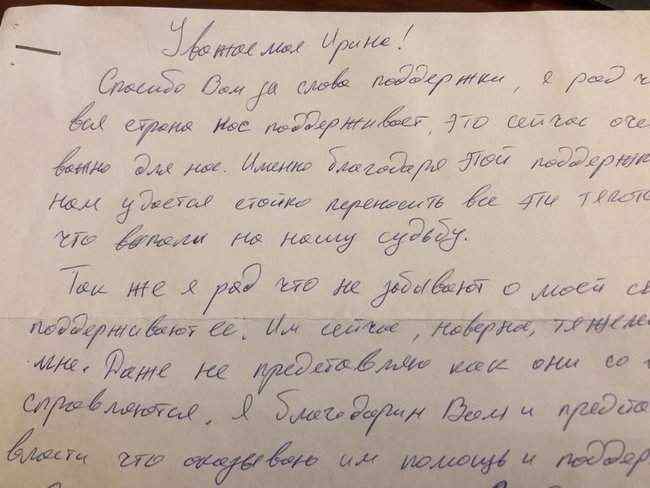 Уважаемая Ирина!
Спасибо Вам за слова поддержки, я рад ч
вся страна нас поддерживает, это сейчас оче
важно для нас. Именно благодаря этой поддержк
нам удастся стойко переносить все эти тягот
что выпали на нашу судьбу.
Так же я рад что не забывают о моей се
поддерживают ее. Им сейчас, наверна, тяжеле
мне. Даже не представляю как они со
справляются. Я благодарин Вам и предста
власти что оказываю им помощь и поддер